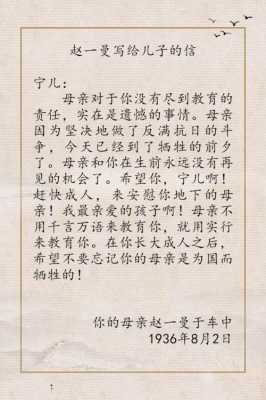 赵一曼写给儿子的信
宁儿：
母亲对于你没有尽到教育的
责任，实在是遗憾的事情。母亲
因为坚决地做了反满抗日的斗
争，今天已经到了牺牲的前夕
了。母亲和你在生前永远没有再
见的机会了。希望你，宁儿啊！
赶快成人，来安慰你地下的母
亲！我最亲爱的孩子啊！母亲不
用千言万语来教育你，就用实行
来教育你。在你长大成人之后，
希望不要忘记你的母亲是为国而
牺牲的！
你的母亲赵一曼于车中
1936年8月2日